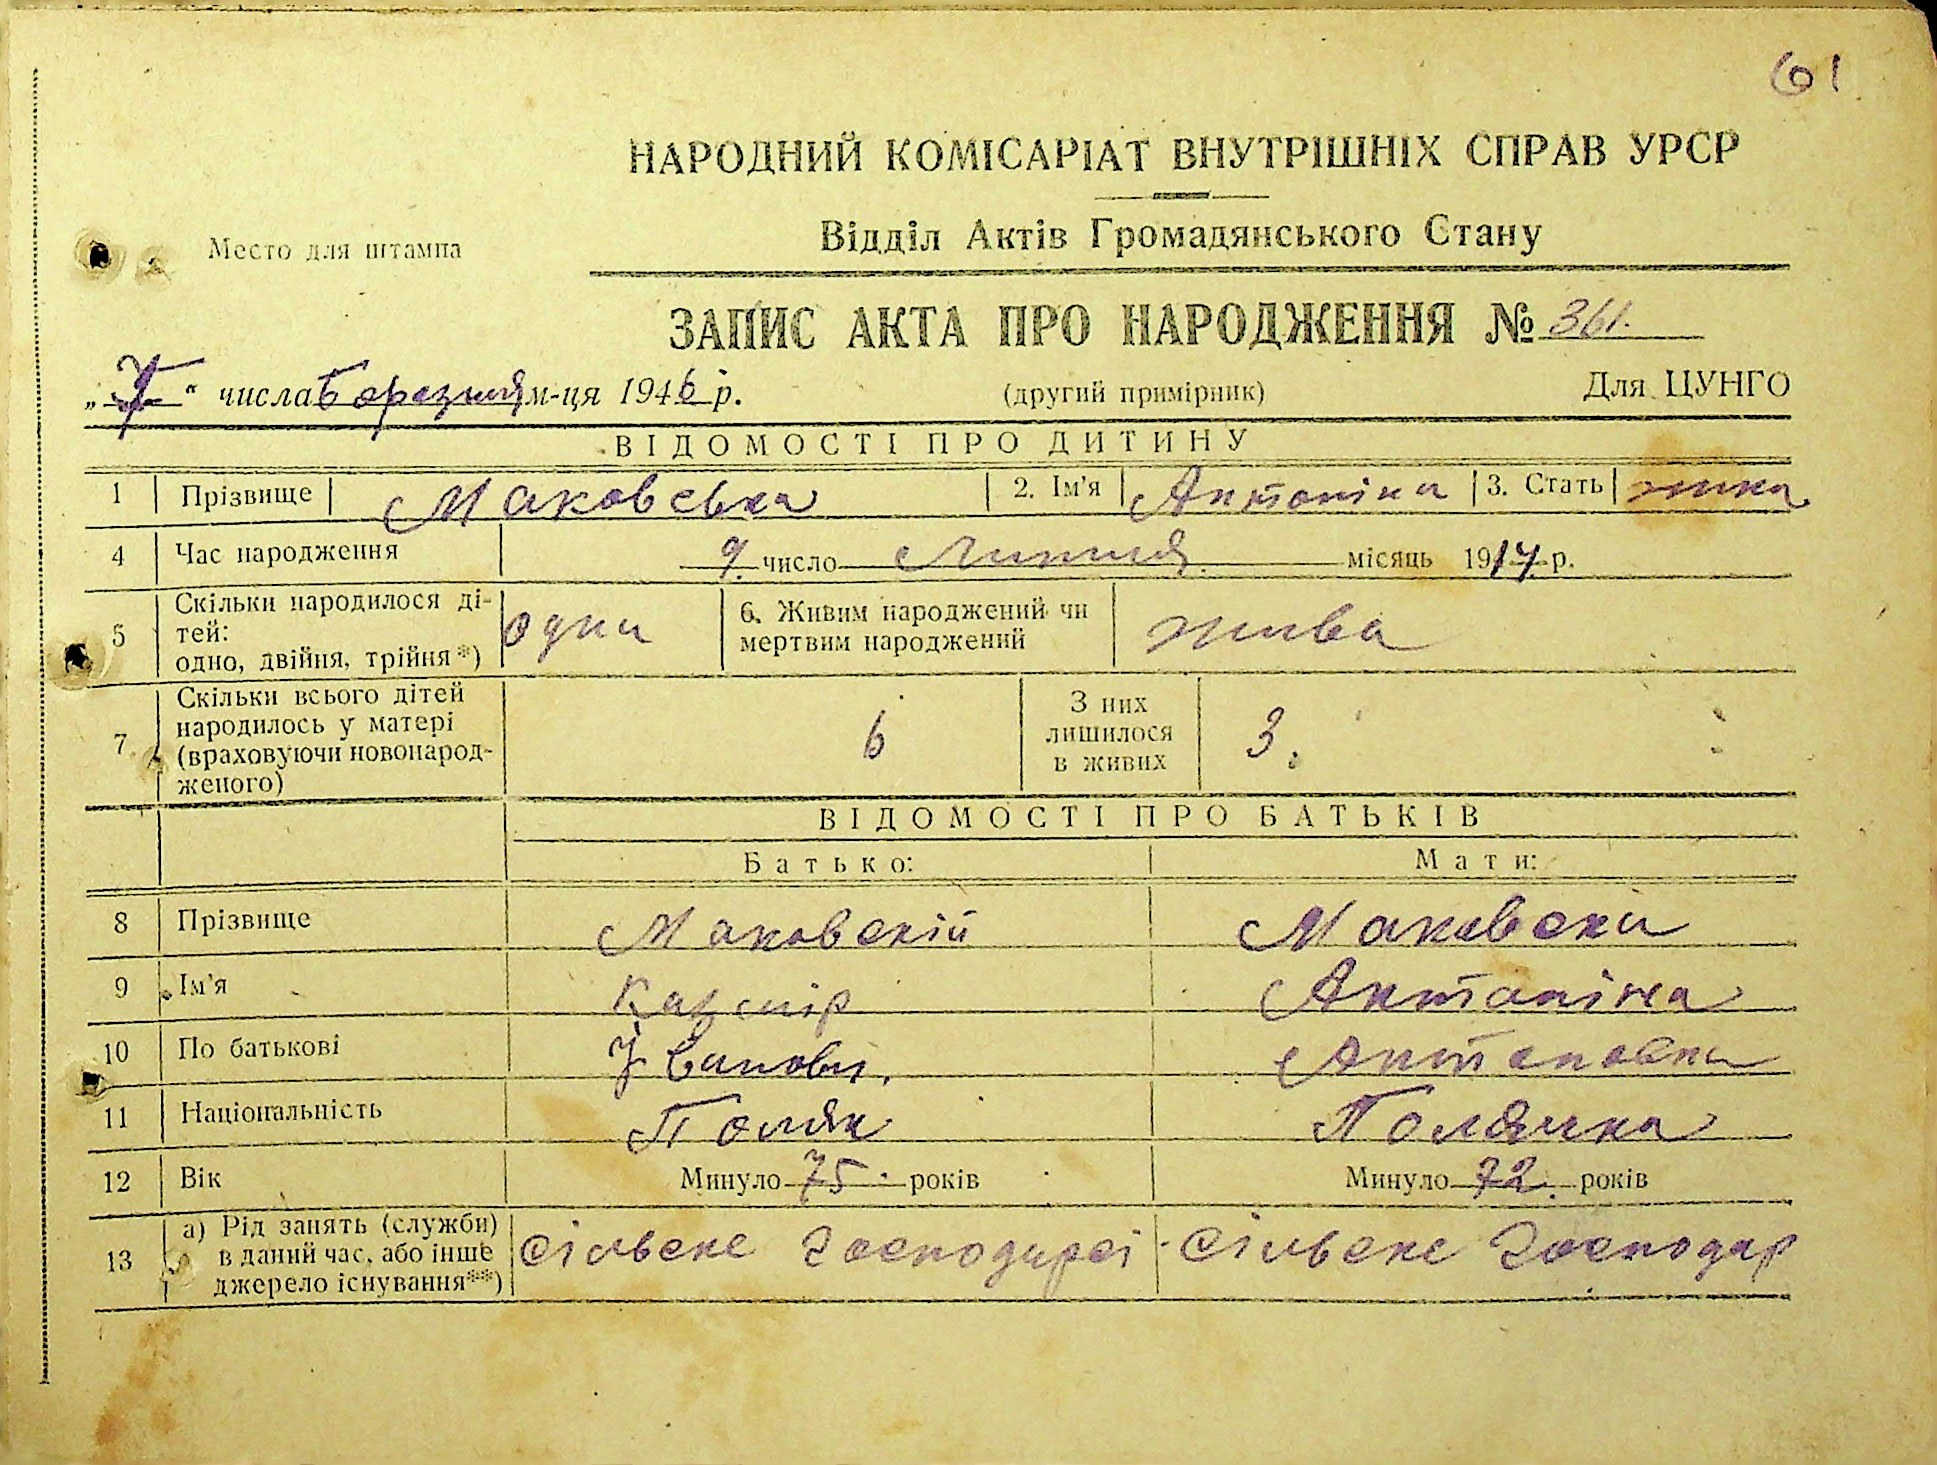 61
НАРОДНИЙ КОМІСАРІАТ ВНУТРІШНІХ СПРАВ УРСР
Відділ Актів Громадянського Стану
Место для штампа
ЗАПИС АКТА ПРО НАРОДЖЕННЯ № 361.
" " числа Березня м-ця 1946 р. (другий примірник) Для ЦУНГО
ВІДОМОСТІ ПРО ДИТИНУ
1 Прізвище Маковська 2. Ім'я Антоніна 3. Стать жика
4 Час народження 9 число Липня місяць 1917 р.
5 Скільки народилося ді-
тей:
одно, двійня, трійня*) одна 6. Живим народжений чи
мертвим народжений жива
7 Скільки всього дітей
народилось у матері
(враховуючи новонарод-
женого) 6 З них
лишилося
в живих 3.
ВІДОМОСТІ ПРО БАТЬКІВ
Батько: Мати:
8 Прізвище Маковскій Маковска
9 Ім'я Казмір Антоніна
10 По батькові Іванови. Антоновна
11 Національність Поляк Полячка
12 Вік Минуло 75 років Минуло 72. років
13 а) Рід занять (служби)
в даний час, або інше
джерело існування**) Сільске господарсі Сільске господар